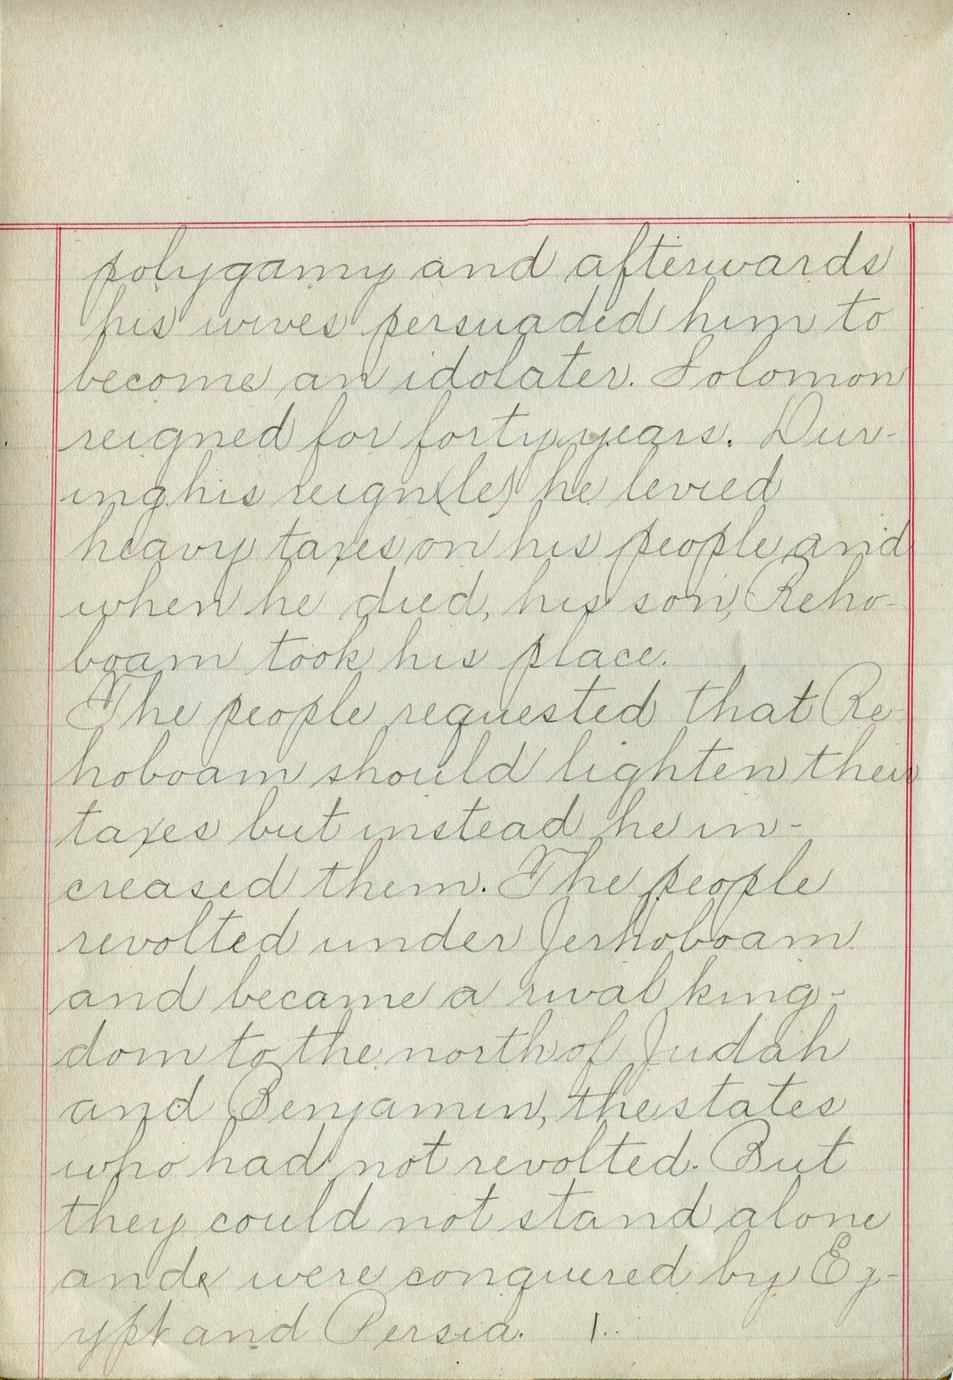 polygamy and afterwards
his wives persuaded him to
become an idolater. Solomon
reigned for forty years. Dur-
ing his reign (le) he levied
heavy taxes on his people and
when he died, his son, Reho-
boam took his place.
The people requested that Re
hoboam should lighten their
taxes but instead he in-
creased them. The people
revolted under Jerhoboam
and became a rival king-
dom to the north of Judah
and Benjamin, the states
who had not revolted. But
they could not stand alone
and were conquered by Eg-
ypt and Persia. 1..